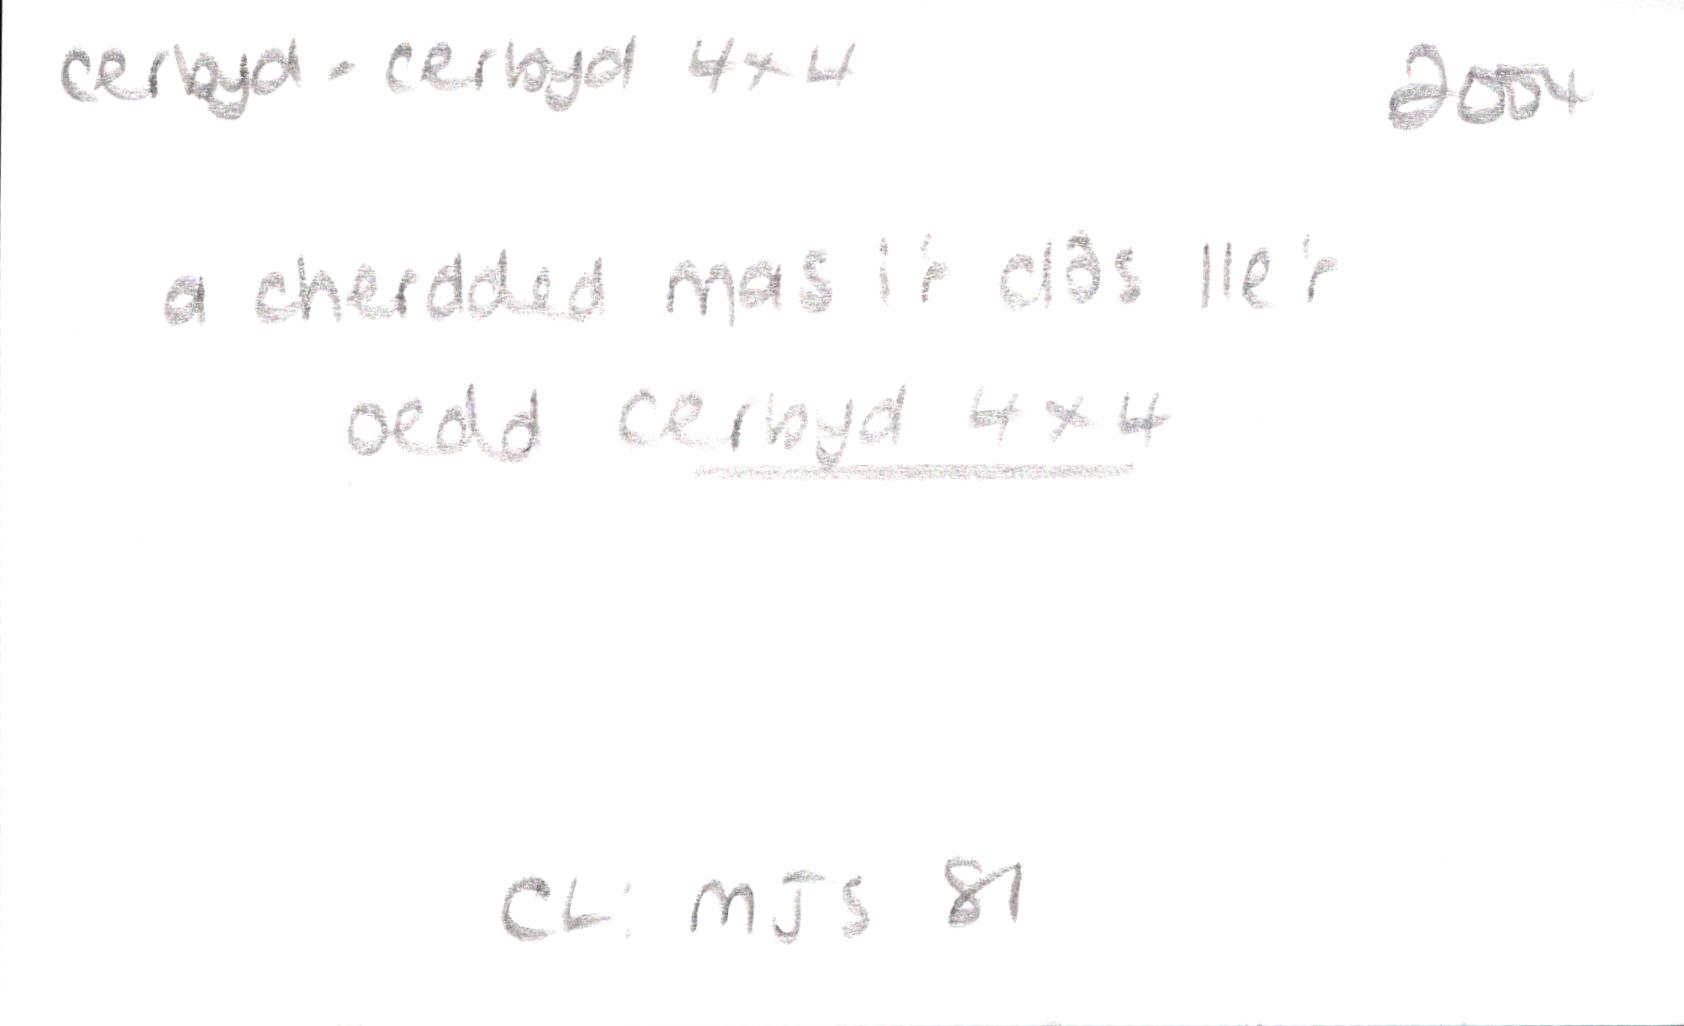 cerbyd - cerbyd 4x4 2004
a cherdded mas i'r clôs lle'r
oedd cerbyd 4x4
CL: MJS 81